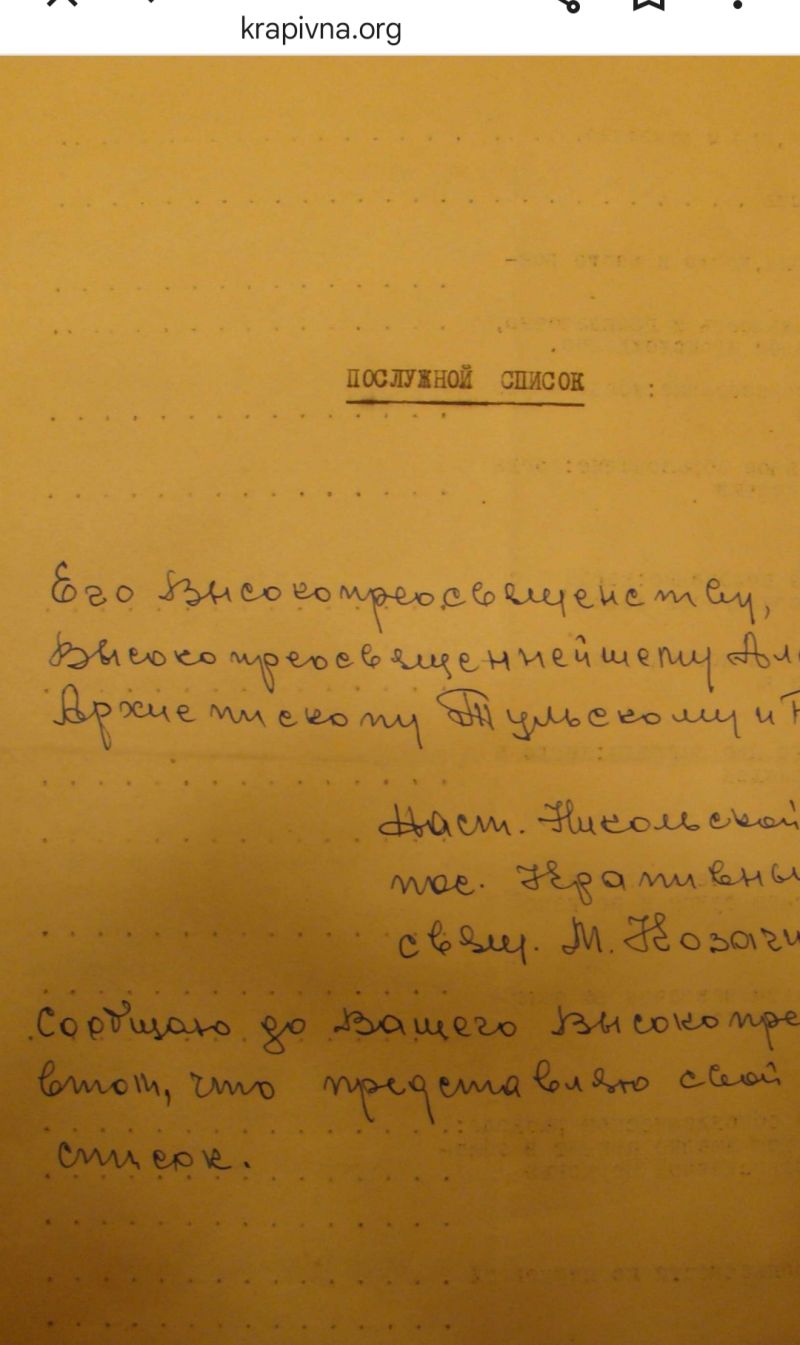 krapivna.org
ПОСЛУЖНОЙ СПИСОК
Его Высокопреосвященству,
Высокопреосвященнейшему Але
Архиепископу Тульскому и
Наст. Никольской
пос. Крапивны
свящ. М. Козачи
Сообщаю до Вашего Высокопре
втом, что представляю свой
список.